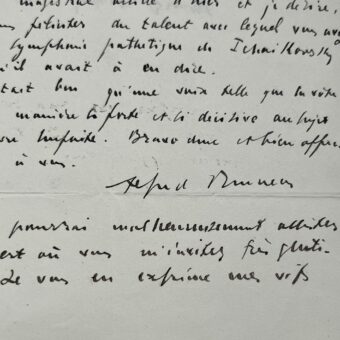 magistral article d'hier et je désire,
féliciter du talent avec lequel vous avez
Symphonie pathétique de Tchaïkovsky
qu'il avait à en dire.
était bon qu'une voix telle que la vôtre
manière si forte et si décisive au sujet
Bravo donc et bien affec
à vous.
Alfred Bruneau
pourrai malheureusement assister
où vous m'invitez très genti-
Je vous en exprime mes vifs